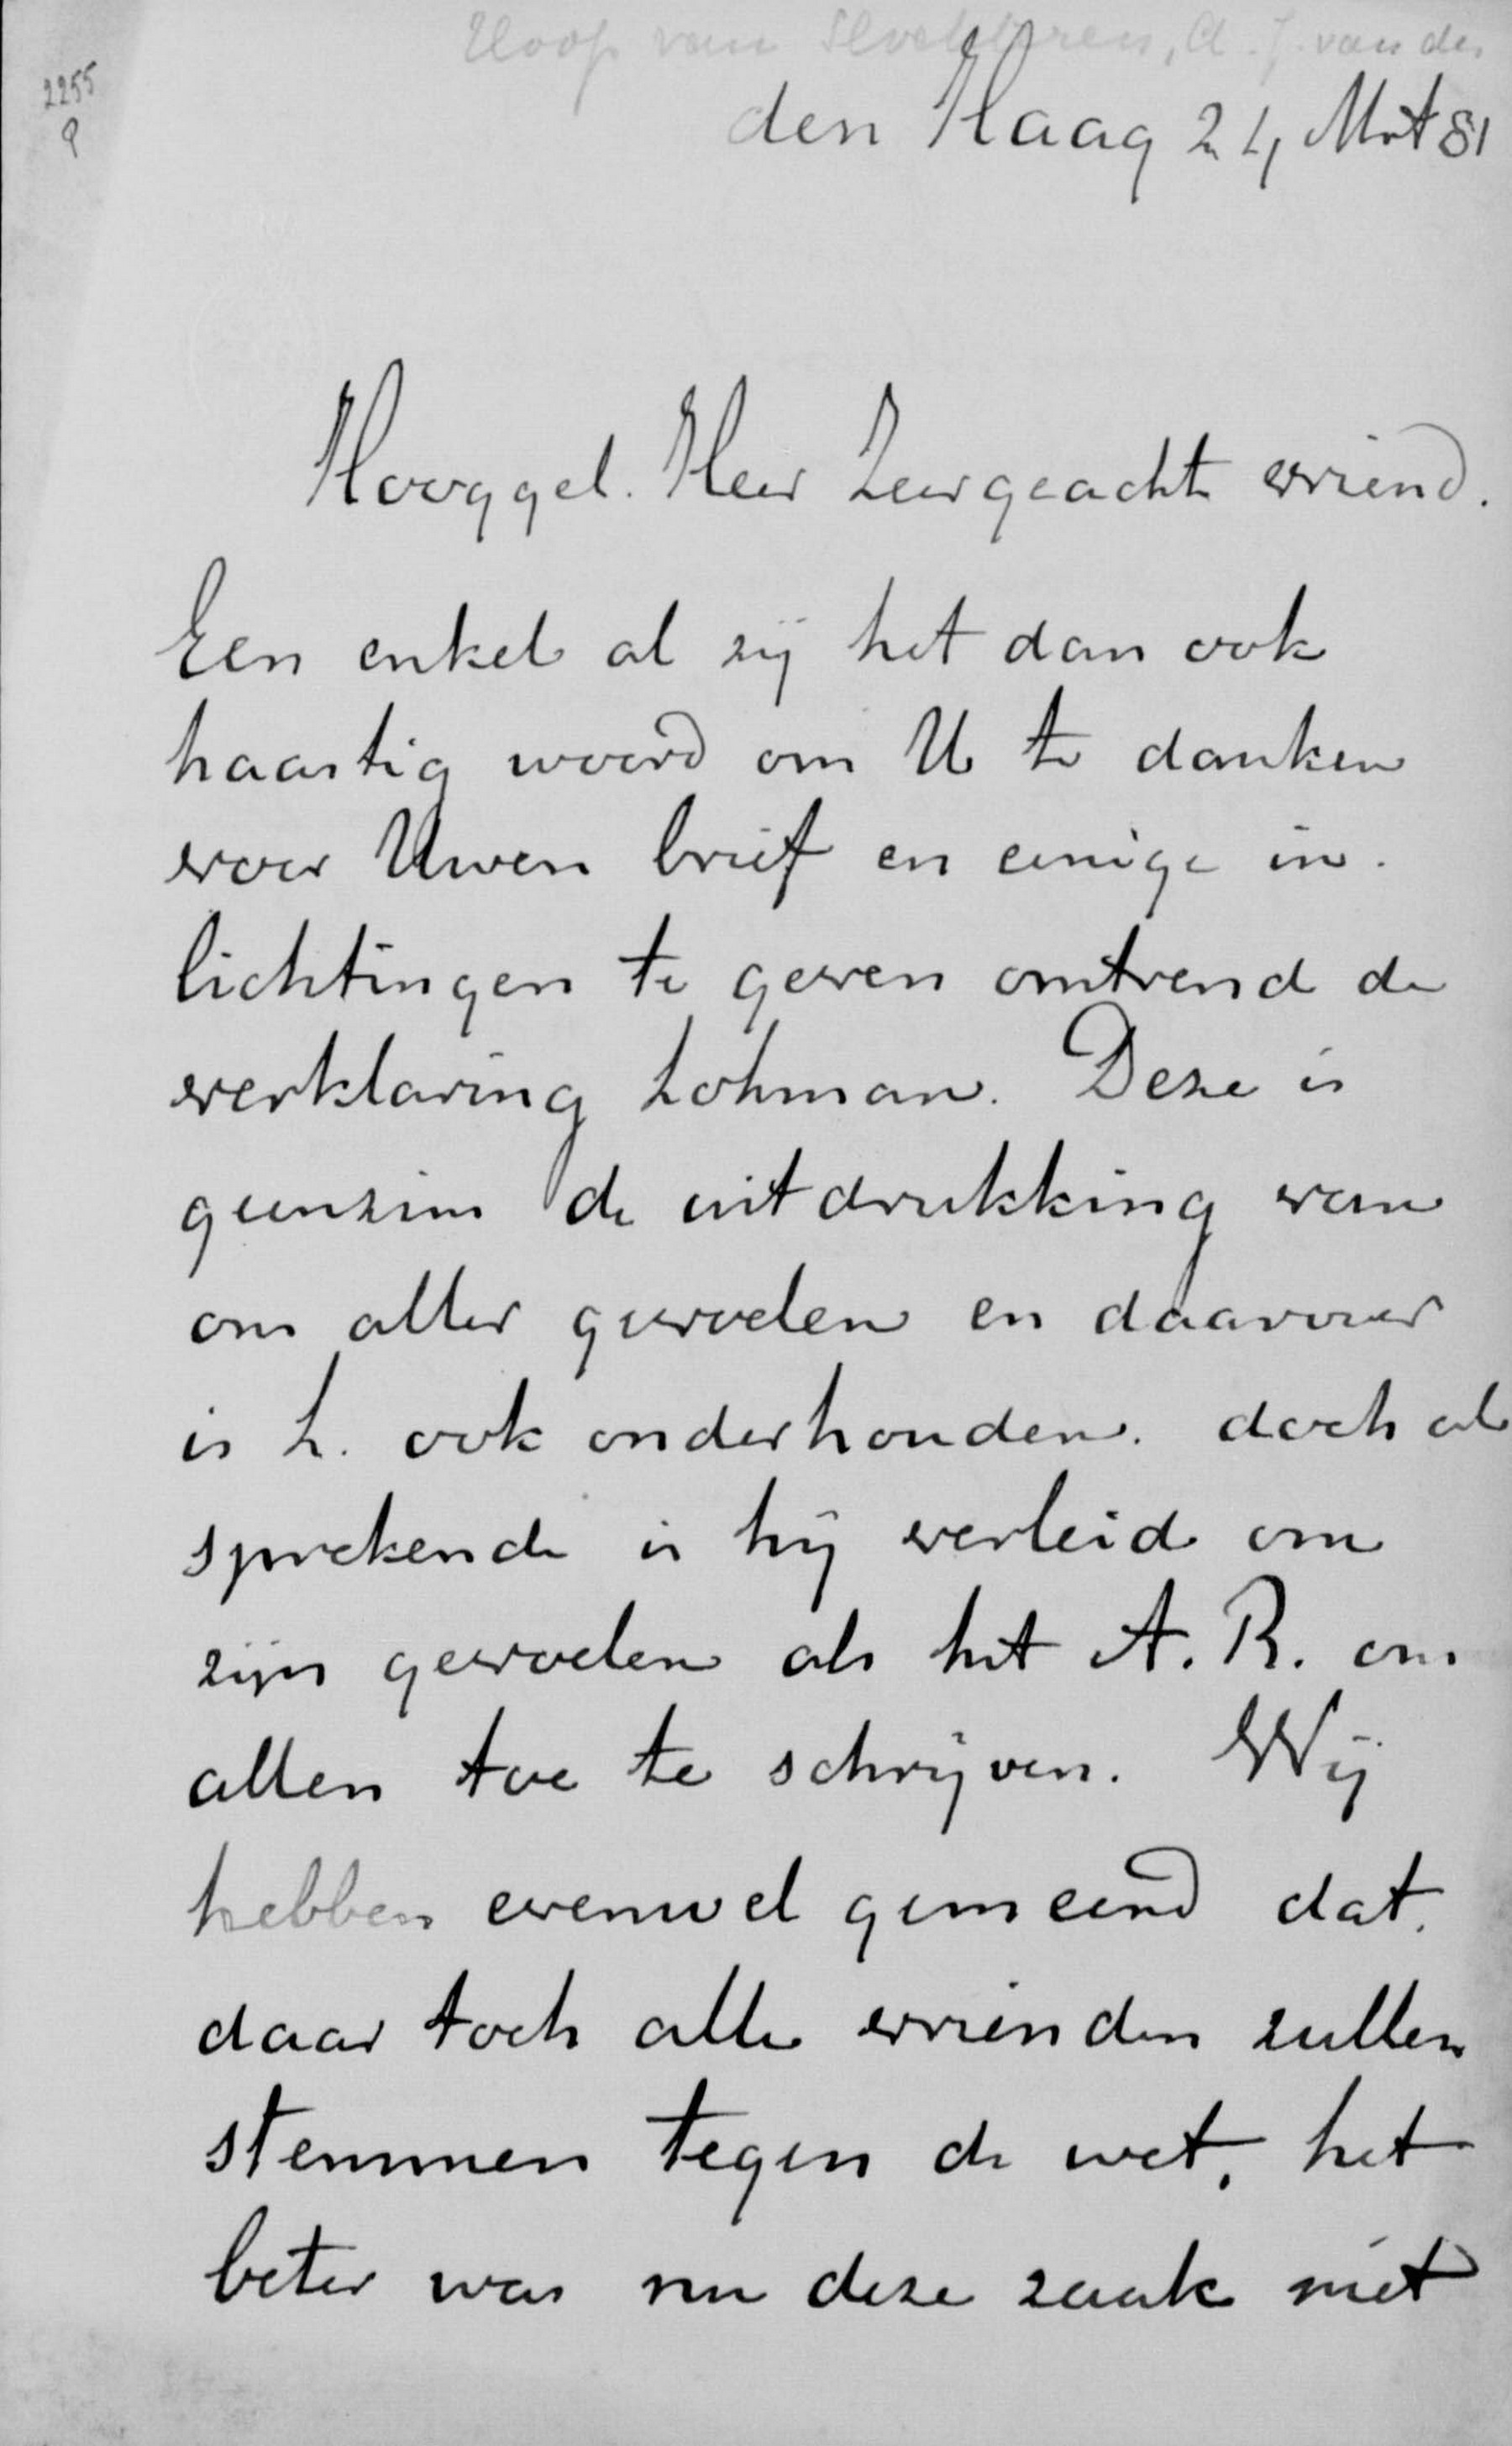 Hoop van Slochteren, A. J. van der
2255
den Haag 24 Mrt 81
Hooggel. Heer Zeergeachte vriend.
Een enkel al zij het dan ook
haastig woord om U te danken
voor Uwen brief en eenige in-
lichtingen te geven omtrend de
verklaring Lohman. Deze is
geenzins de uitdrukking van
ons aller gevoelen en daarover
is L. ook onderhouden. doch al
sprekende is hij verleid om
zijn gevoelen als het A. R. ons
allen toe te schrijven. Wij
hebben evenwel gemeend dat.
daar toch alle vrienden zullen
stemmen tegen de wet, het
beter was nu deze zaak niet